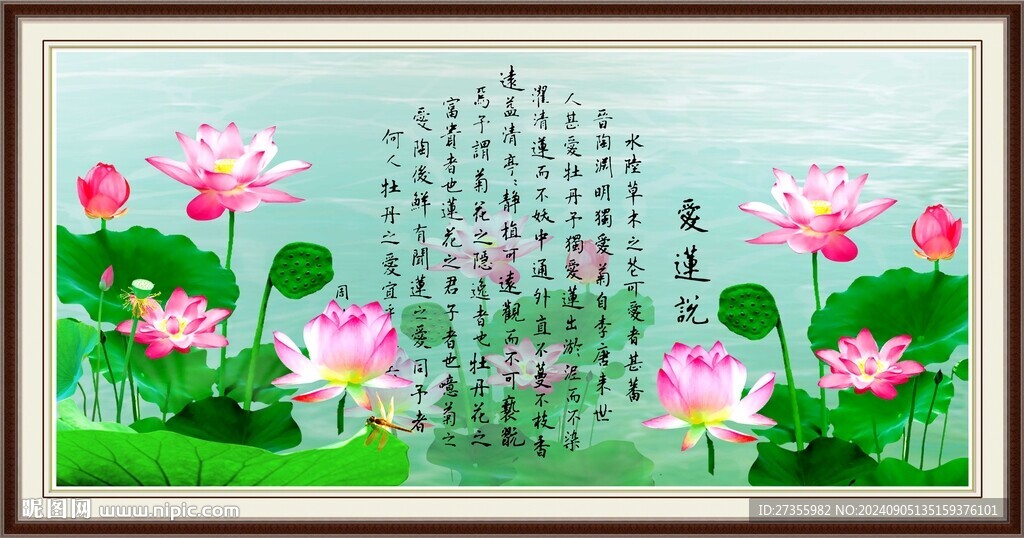 愛蓮說
水陸草木之花可愛者甚蕃
晉陶淵明獨愛菊自李唐来世
人甚愛牡丹予獨愛蓮出淤泥而不染
濯清蓮而不妖中通外直不蔓不枝香
遠益清亭、静植可遠觀而不可褻翫
焉予謂菊花之隐逸者也牡丹花之
富貴者也蓮花之君子者也噫菊之
愛陶後鮮有聞蓮之愛同予者
何人牡丹之愛宜乎
周
昵图网 www.nipic.com
ID:27355982 NO:20240905135159376101